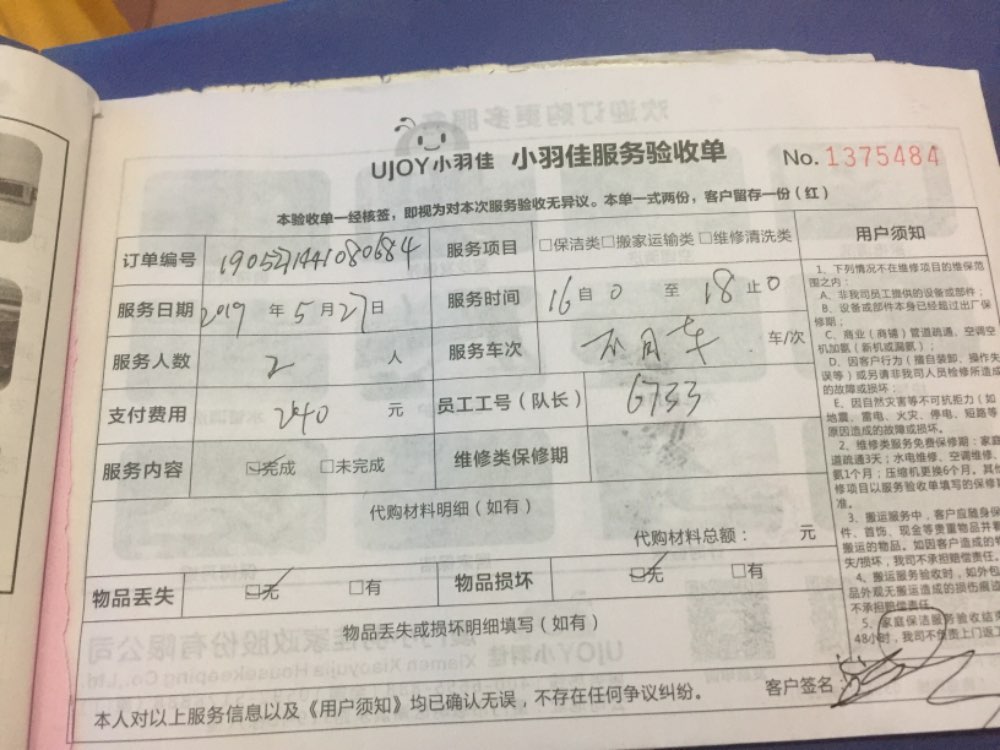 UJOY小羽佳 小羽佳服务验收单 No. 1375484
本验收单一经核签，即视为对本次服务验收无异议。本单一式两份，客户留存一份（红）
订单编号 190527144108684 服务项目 □保洁类□搬家运输类□维修清洗类
服务日期 2019年5月27日 服务时间 16自0至18止0
服务人数 2 人 服务车次 车/次
支付费用 240 元 员工工号（队长） 6733
服务内容 ☑完成 □未完成 维修类保修期
代购材料明细（如有）
代购材料总额： 元
物品丢失 ☑无 □有 物品损坏 ☑无 □有
物品丢失或损坏明细填写（如有）
客户签名
本人对以上服务信息以及《用户须知》均已确认无误，不存在任何争议纠纷。
用户须知
1、下列情况不在维修项目的维保范
围之内：
A、非我司员工提供的设备或部件；
B、设备或部件本身已经超过出厂保
修期；
C、商业（商铺）管道疏通、空调空
机加氨（新机或漏氨）；
D、因客户行为（擅自装卸、操作失
误等）或另请非我司人员检修所造成
的故障或损坏；
E、因自然灾害等不可抗拒力（如
地震、雷电、火灾、停电、短路等
原因造成的故障或损坏。
2、维修类服务免费保修期：家庭
道疏通3天；水电维修、空调维修、
氨1个月；压缩机更换6个月。其他
修项目以服务验收单填写的保修期
准。
3、搬运服务中，客户应随身保
件、首饰、现金等贵重物品并和
搬运的物品。如因客户造成的物
失/损坏，我司不承担赔偿责任。
4、搬运服务验收时，如外包
品外观无搬运造成的损伤痕迹
不承担赔偿责任。
5、家庭保洁服务验收结束
48小时，我司不负责上门返工